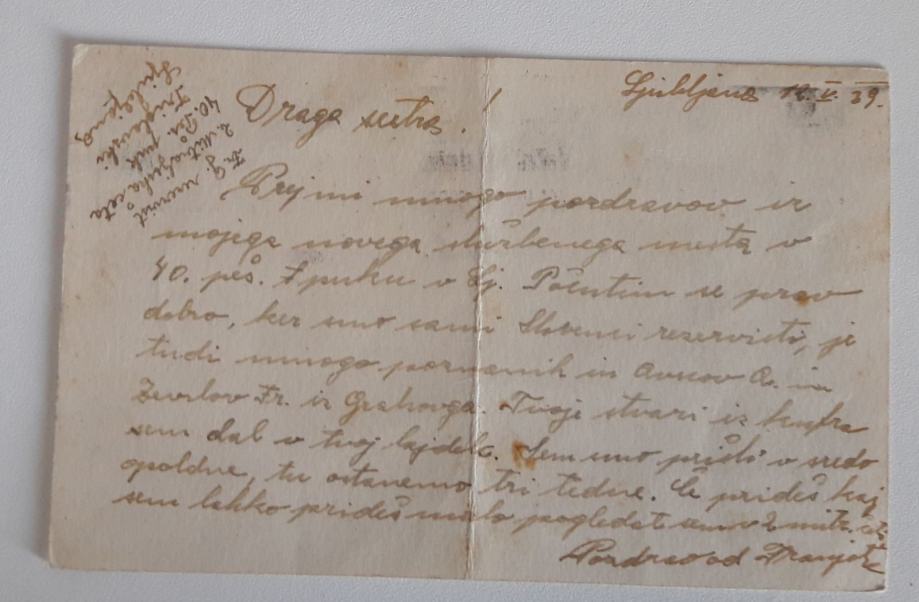 Ljubljana 14. V. 39.
Draga sestra!
Prejmi mnogo pozdravov iz
mojega novega službenega mesta v
40. peš. puku v Lj. Počutim se prav
dobro, ker smo sami Slovenci rezervisti, je
tudi mnogo poznanih in
Fr. iz Grahovga. Tvoje stvari iz kufra
sem dal v tvoj lajdelc. Sem smo prišli v sredo
opoldne, tu ostanemo tri tedne. Če prideš kaj
sem lahko prideš malo pogledat smo v 2 mitr. četi
Pozdrav od Franjota
Fr. G.
2. Mitraljeska četa
40. puk
Triglavski
Ljubljana